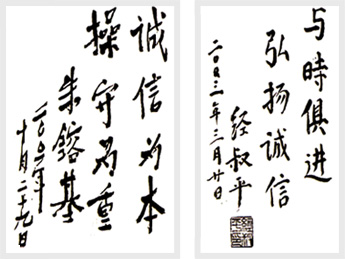 诚信为本
操守为重
朱鎔基
二〇〇一年
十月二十九日
与時俱进
弘扬诚信
经叔平
二〇〇三年三月廿日